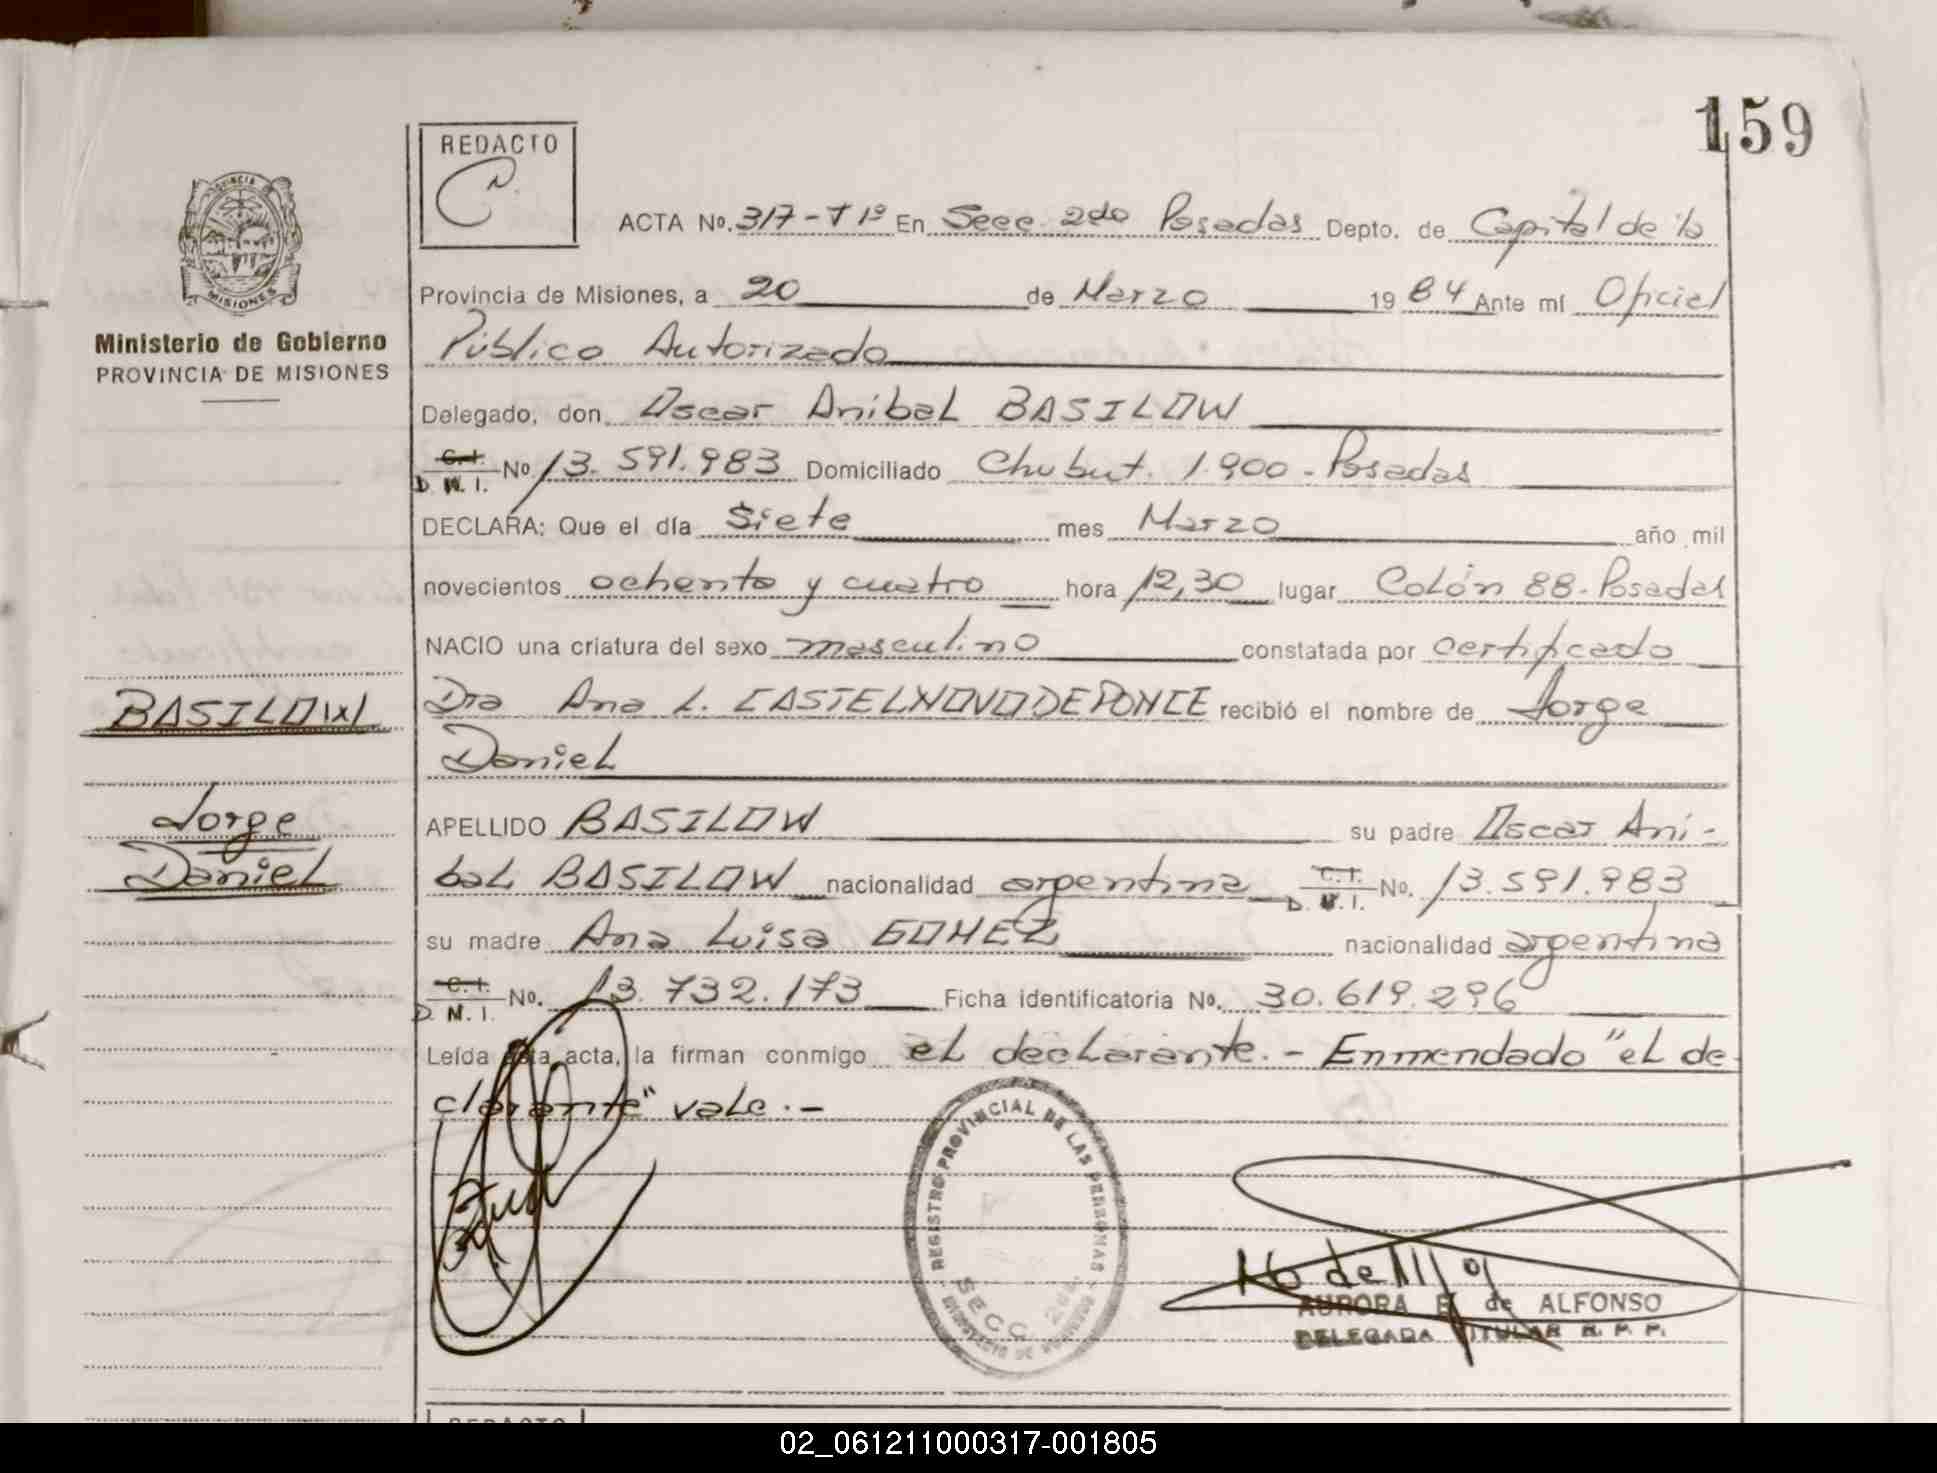 159
REDACTO
C.
ACTA No. 317-T 1º En Secc 2da Posadas Depto. de Capital de la
Provincia de Misiones, a 20 de Marzo 1984 Ante mí Oficial
Público Autorizado
Delegado, don Oscar Anibal BASILOW
C.I. D.N.I. No. 13.591.983 Domiciliado Chubut 1.900 - Posadas
DECLARA: Que el día Siete mes Marzo año mil
novecientos ochenta y cuatro hora 12,30 lugar Colón 88 - Posadas
NACIO una criatura del sexo masculino constatada por certificado
Dra Ana L. CASTELNOVO DE PONCE recibió el nombre de Jorge
Daniel
APELLIDO BASILOW su padre Oscar Ani-
bal BASILOW nacionalidad argentina C.I. D.N.I. No. 13.591.983
su madre Ana Luisa GOMEZ nacionalidad argentina
C.I. D.N.I. No. 13.732.173 Ficha identificatoria No. 30.619.296
Leída esta acta, la firman conmigo el declarante. - Enmendado "el de-
clarante" vale. -
PROVINCIA DE
MISIONES
Ministerio de Gobierno
PROVINCIA DE MISIONES
BASILOW
Jorge
Daniel
REGISTRO PROVINCIAL DE LAS PERSONAS
SECC. 2da.
MINISTERIO DE GOBIERNO
AURORA E. de ALFONSO
DELEGADA TITULAR R. P. P.
REDACTO
02_061211000317-001805